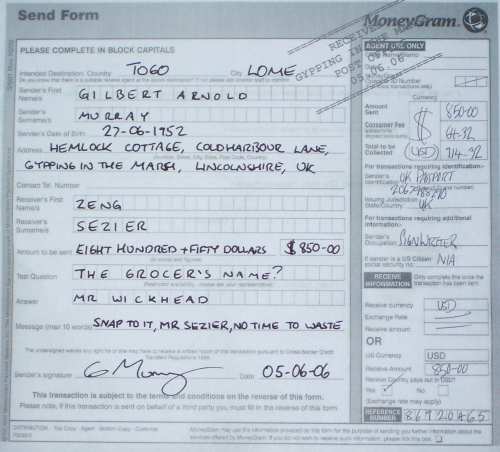 Send Form
MoneyGram
RECEIVED
GYPPING IN THE MARSH
POST OFFICE
05.06.06
PLEASE COMPLETE IN BLOCK CAPITALS
AGENT USE ONLY
Intended Destination: Country TOGO City LOME
Sender's First Name/s GILBERT ARNOLD
Sender's Surname/s MURRAY
Sender's Date of Birth 27-06-1952
Address HEMLOCK COTTAGE, COLDHARBOUR LANE,
GYPPING IN THE MARSH, LINCOLNSHIRE, UK
Contact Tel. Number
Receiver's First Name/s ZENG
Receiver's Surname/s SEZIER
Amount to be sent EIGHT HUNDRED + FIFTY DOLLARS $850-00
(in words and figures)
Test Question THE GROCER'S NAME?
Answer MR WICKHEAD
Message (max 10 words) SNAP TO IT, MR SEZIER, NO TIME TO WASTE
Sender's signature
Date 05-06-06
This transaction is subject to the terms and conditions on the reverse of this form.
Please note, if this transaction is sent on behalf of a third party you must fill in the reverse of this form
Currency
Amount Sent $ 850-00
Consumer Fee
Total to be Collected USD
For transactions requiring identification:-
Sender's Identification UK PASSPORT
Issuing Jurisdiction State/Country UK
For transactions requiring additional information:-
Sender's Occupation SIGNWRITER
If sender is a US Citizen social security no. N/A
RECEIVE INFORMATION
Only complete once the transaction has been sent
Receive currency USD
Exchange Rate
Receive amount
OR
US Currency USD
Receive Amount 850-00
Receive Country pays out in USD?
Yes No
(Exchange rate may apply)
REFERENCE NUMBER 86920465
DISTRIBUTION - Top Copy - Agent - Bottom Copy - Customer